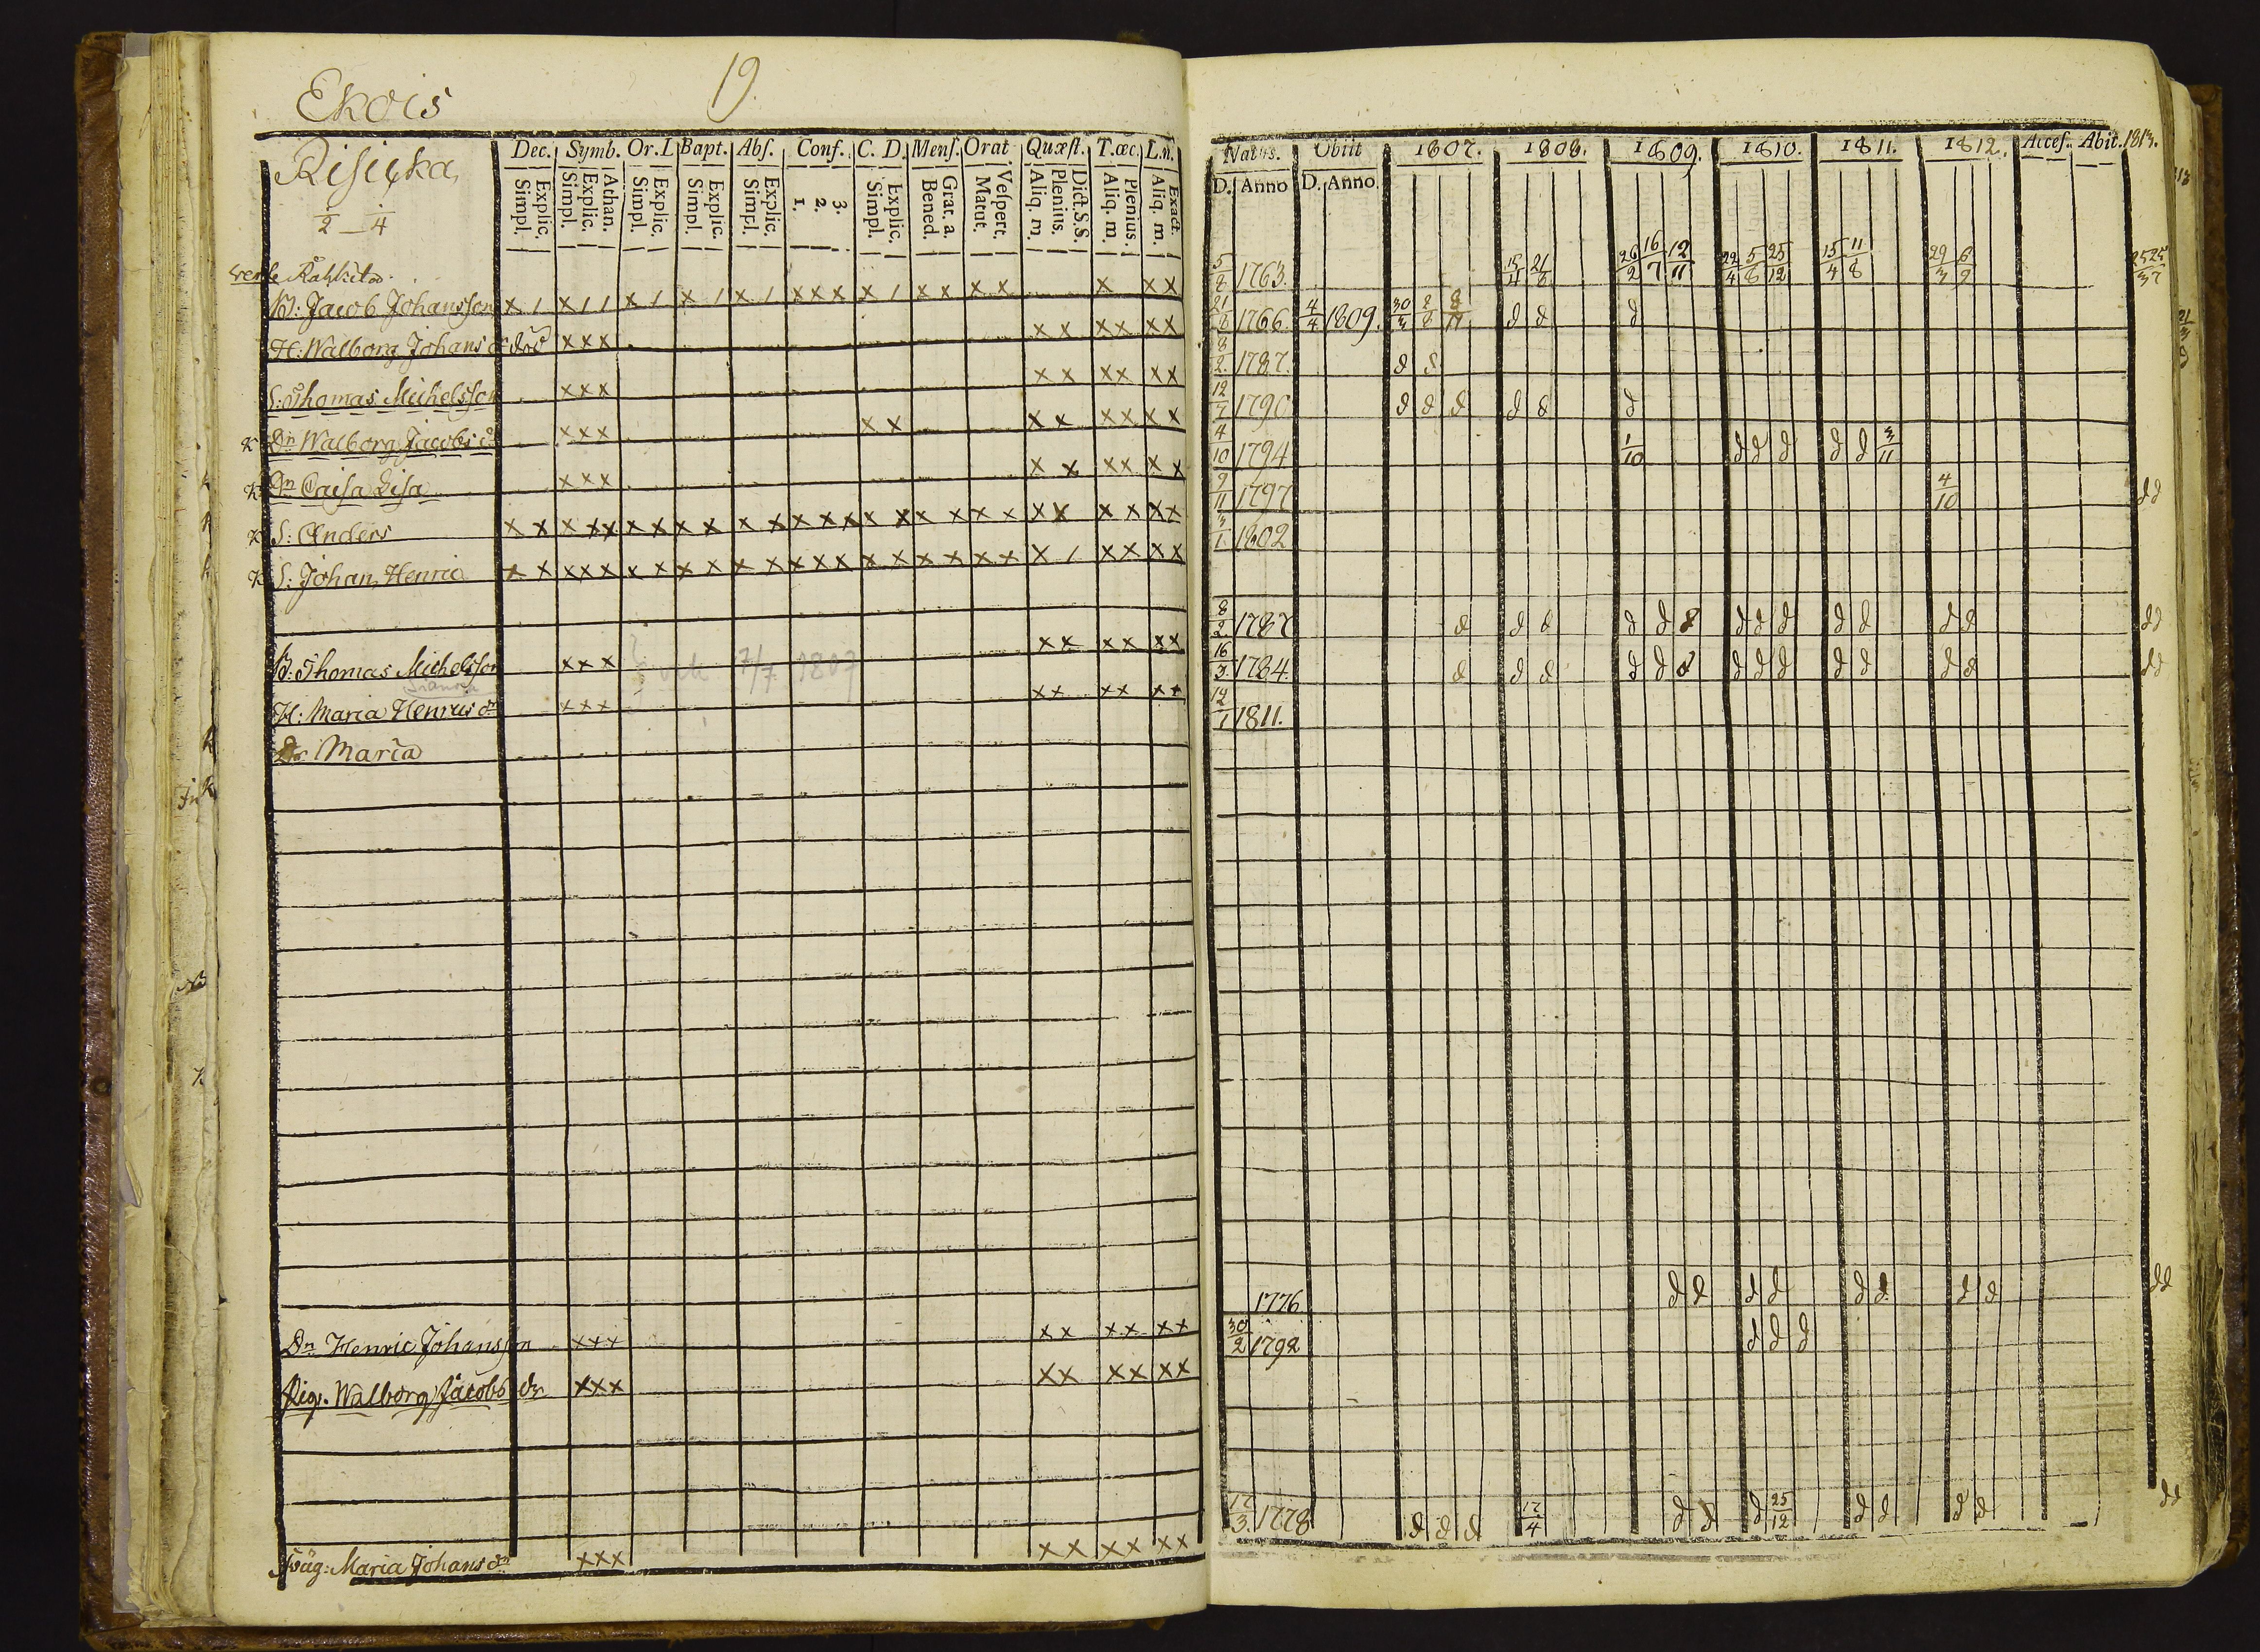 Ekois
19.
Risicka
1/2 — 1/4
Dec. Symb. Or. D Bapt. Abs. Conf. C. D. Mens. Orat. Quæst. T. œc. L. n.
Simpl. Explic. Simpl. Explic. Athan. Simpl. Explic. Simpl. Explic. Simpl. Explic. 1. 2. 3. Simpl. Explic. Bened. Grat. a. Matut. Vespert. Aliq. m. Plenius. Dict. S.S. Aliq. m. Plenius. Aliq. m. Exact.
B: Jacob Johansson x / x / / x / x / x / x x x x / x x x x x x x
H: Walborg Johans dr död x x x x x x x x x
S: Thomas Michelsson x x x x x x x x x
K Dr Walborg Jacobs dr x x x x x x x x x x x
K Dr Caisa Lisa x x x x x x x x x
K S: Anders x x x x x x x x x x x x x x x x x x x x x x x x x x
K S: Johan Henric x x x x x x x x x x x x x x x x x x x x x / x x x x
B: Thomas Michelsson x x x x x x x x x
7/7 1807
H: Maria Henrics dr x x x x x x x x x
Dr: Maria
Dn Henric Johansson x x x x x x x x x
Pig. Walborg Jacobs dr x x x x x x x x x
Maria Johans dr x x x x x x x x x
Natus. Obiit 1807. 1808. 1809. 1810. 1811. 1812. Acces. Abit. 1813.
D. Anno D. Anno.
5/8 1763. 15/4 21/8 26/2 16/7 12/11 22/4 5/8 25/12 15/4 11/8 29/3 6/9 25/3 25/7
21/8 1766. 4/4 1809. 30/3 2/8 8/11 d d d
8/2. 1787. d d
12/7 1790 d d d d d d
4/10 1794 1/10 d d d d d 3/11
9/11 1797 4/10 d d
3/1. 1802
8/2. 1787 d d d d d d d d d d d d d d d
16/3. 1784. d d d d d d d d d d d d d d d
12/1 1811.
1776 d d d d d d d d d d
30/2 1792 d d d
17/3. 1778 d d d 17/4 d d d 25/12 d d d d d d